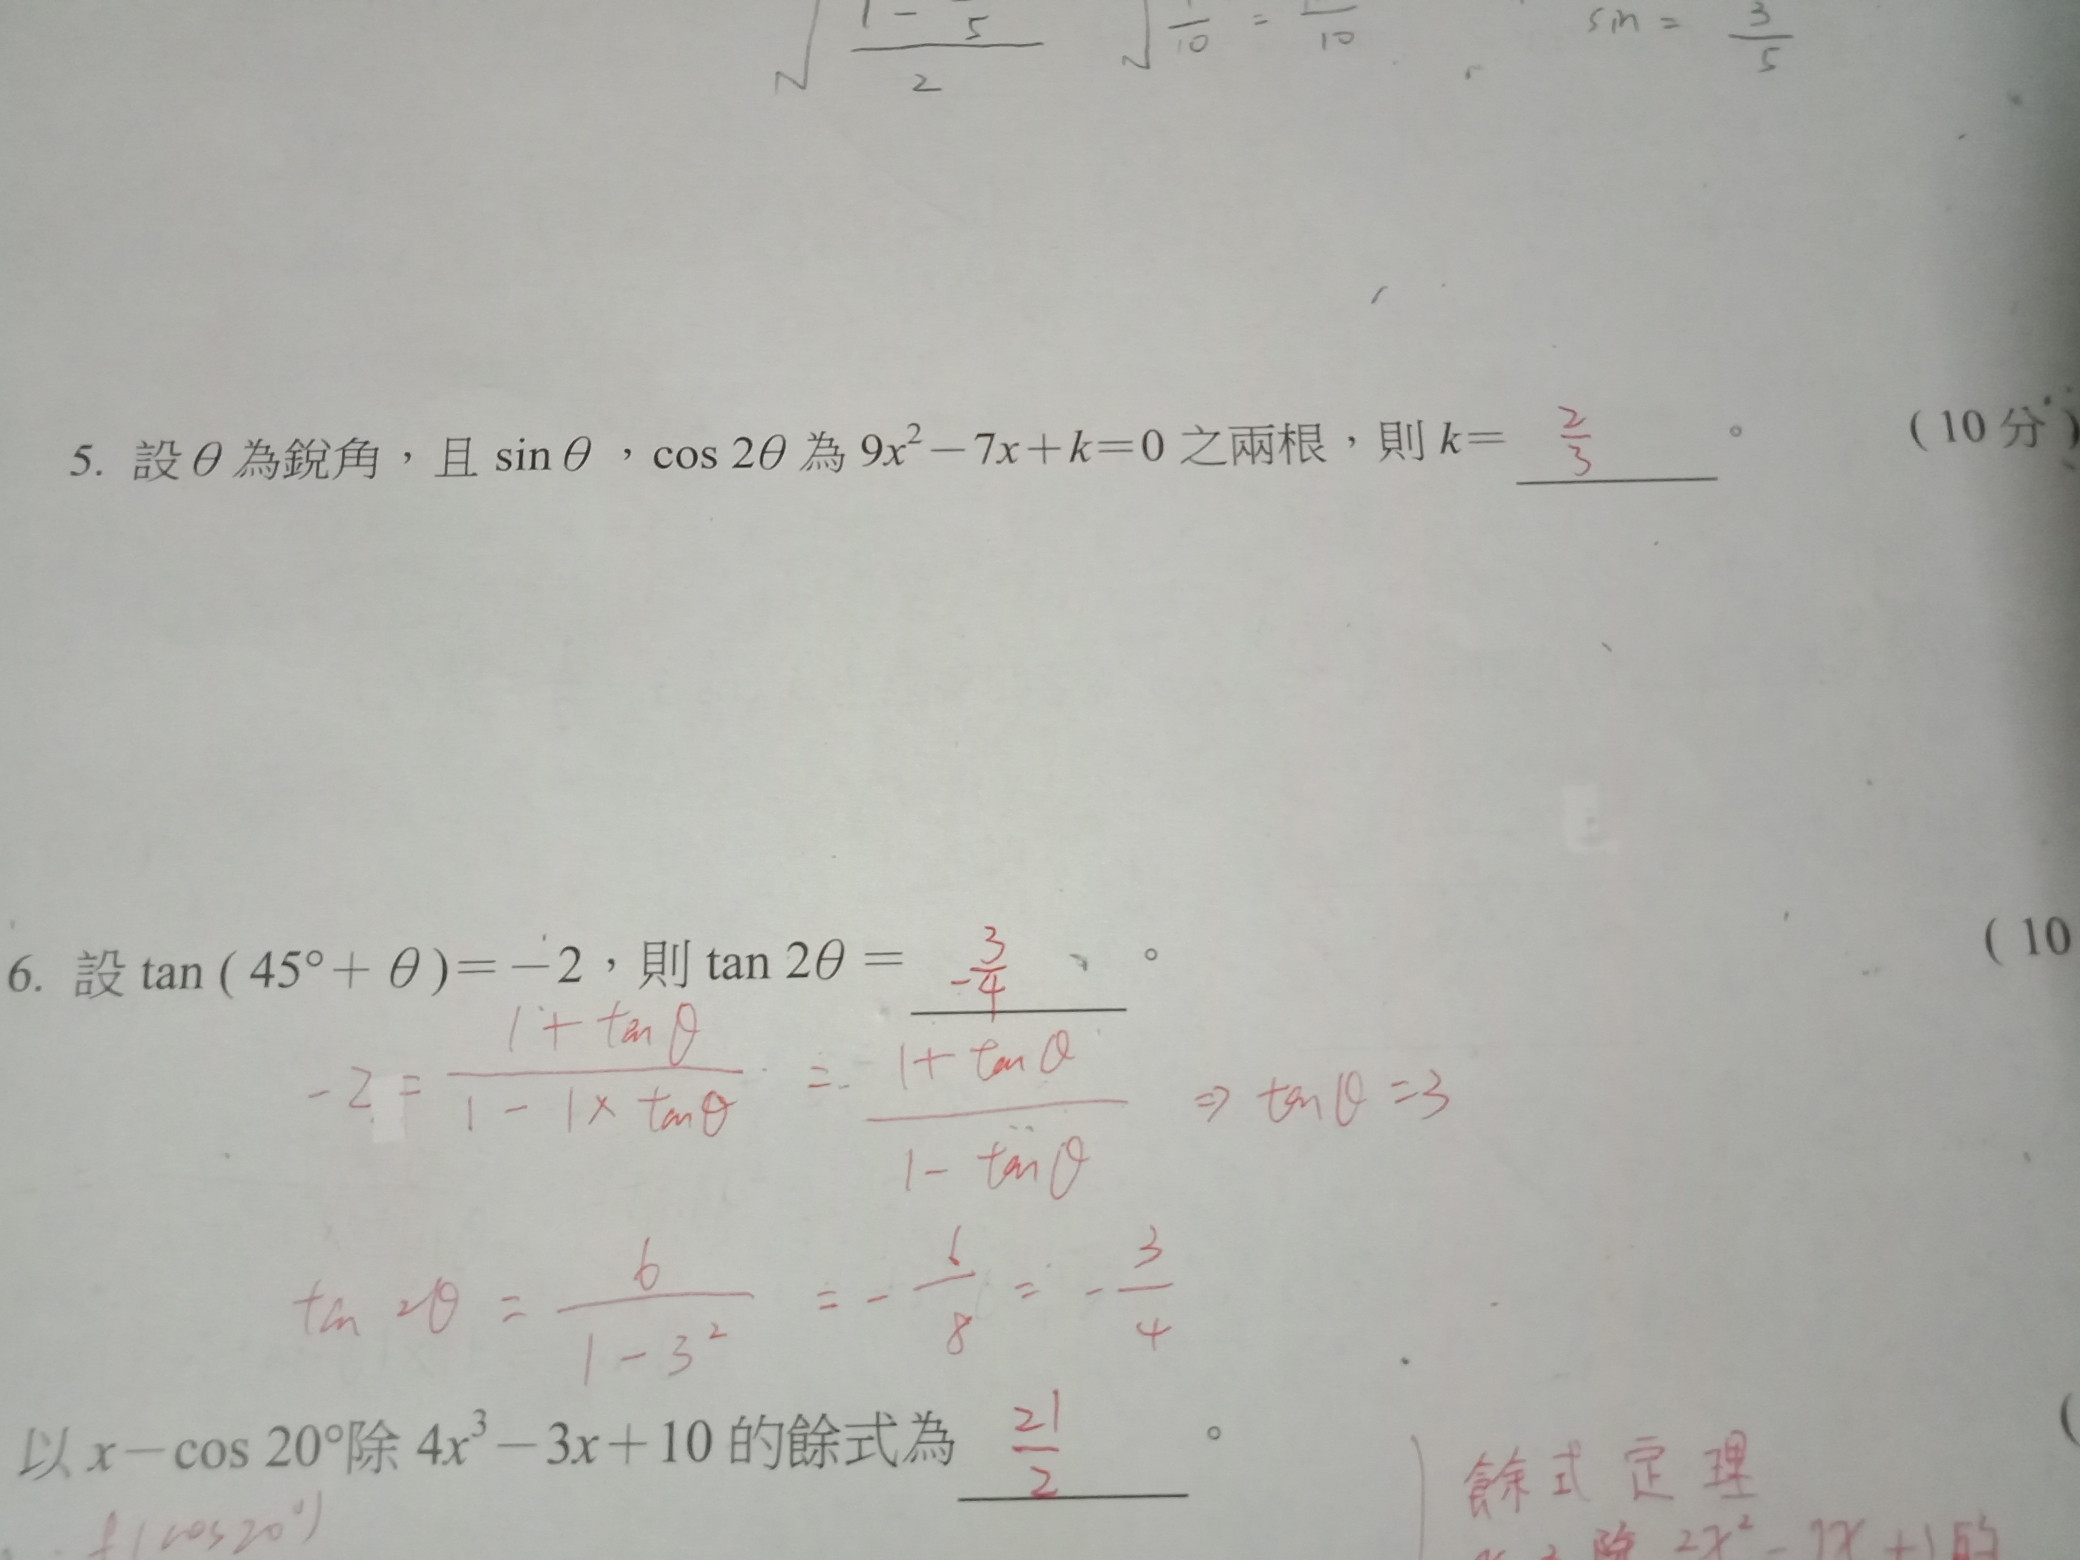 √(1 - /5)/2 √1/10 = /10 sin = 3/5
5. 設θ為銳角，且 sinθ，cos 2θ 為 9x²－7x＋k＝0 之兩根，則 k＝ 2/3 。 (10分)
6. 設 tan ( 45°＋ θ )＝－2，則 tan 2θ ＝ -3/4 。 (10
-2 = (1+ tanθ)/(1 - 1× tanθ) = (1+ tanθ)/(1- tanθ) ⇒ tanθ =3
tan 2θ = 6/(1-3²) = - 6/8 = - 3/4
以 x－cos 20°除 4x³－3x＋10 的餘式為 21/2 。 (
f(cos20°) 餘式定理
除 2x² - 7x +1 的